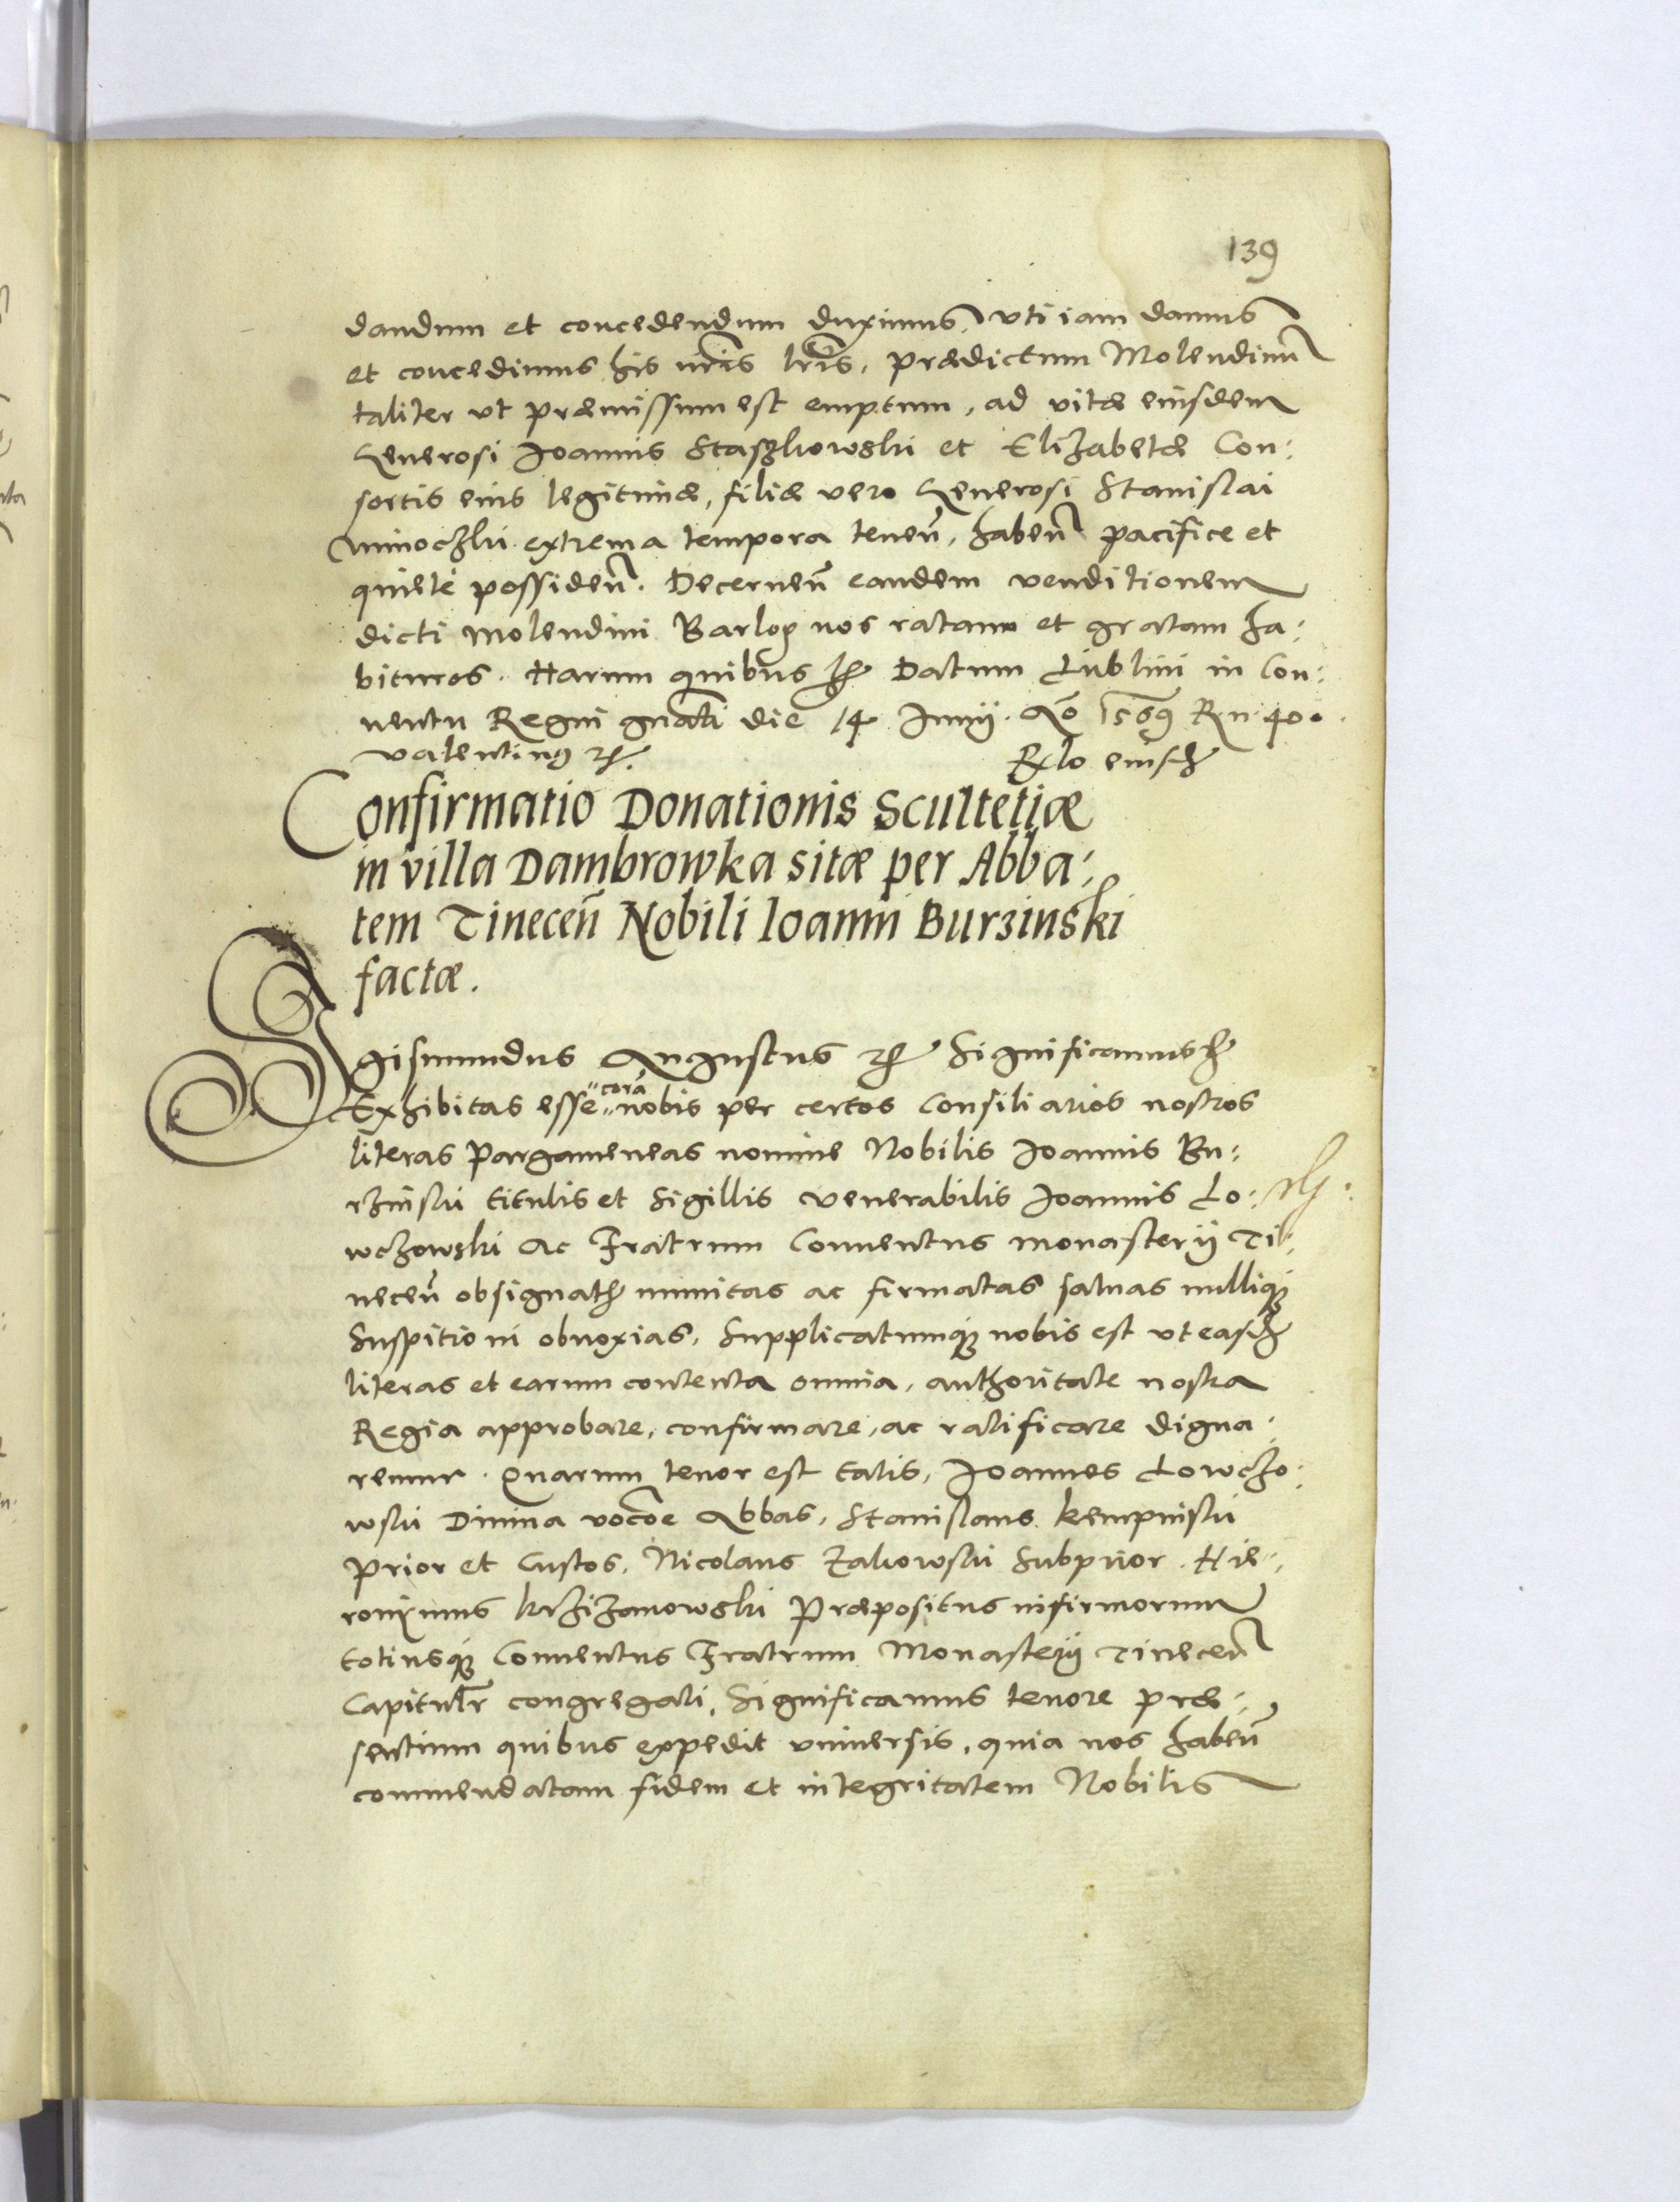 139
dandum et concedendum duximus, vti iam damus
et concedimus his nr̃is lr̃is, prædictum Molendinũ
taliter vt præmissum est emptum, ad vitæ eiusdem
Generosi Joannis Staszkowski et Elizabetæ Con:
sortis eius legitimæ, filiæ vero Generosi Stanislai
Minoczki extrema tempora teneñ, habeñ pacifice et
quietè possideñ. Decerneñ eandem venditionem
dicti molendini Barlog nos ratam et gratam ha:
bituros. Harum quibus etc Datum Lublini in Con:
uentu Regni gñali die 14 Junij. Aõ 1569 Rñ. 40.
Valentinus etc.
Rlo eiusd
Confirmatio Donationis Scultetiæ
in villa Dambrowka sitæ per Abba:
tem Tineceñ Nobili Ioanni Burzinski
factæ.
Sigismundus Augustus etc Significamus etc
Exhibitas esse "corã" nobis per certos Consiliarios nostros
literas Pargameneas nomine Nobilis Joannis Bu:
rzinski titulis et Sigillis Venerabilis Joannis Lo:
wczowski Ac Fratrum Conuentus monasterij Ti:
neceñ obsignatas munitas ac firmatas saluas nulliq₃
Suspitioni obnoxias, Supplicatumq₃ nobis est vt easd
literas et earum contenta omnia, authoritate nostra
Regia approbare, confirmare, ac ratificare digna:
remur. Quarum tenor est talis, Joannes Lowczo:
wski Diuina voc̃oe Abbas, Stanislaus Kempinski
Prior et Custos, Nicolaus Zakowski Subprior. Hie:
ronimus Krzizanowski Præpositus infirmorum
totiusq₃ Conuentus Fratrum Monasterij Tineceñ
Capitulr̃ congregati, Significamus tenore præ:
sentium quibus expedit vniuersis, quia nos habeñ
commendatam fidem et integritatem Nobilis